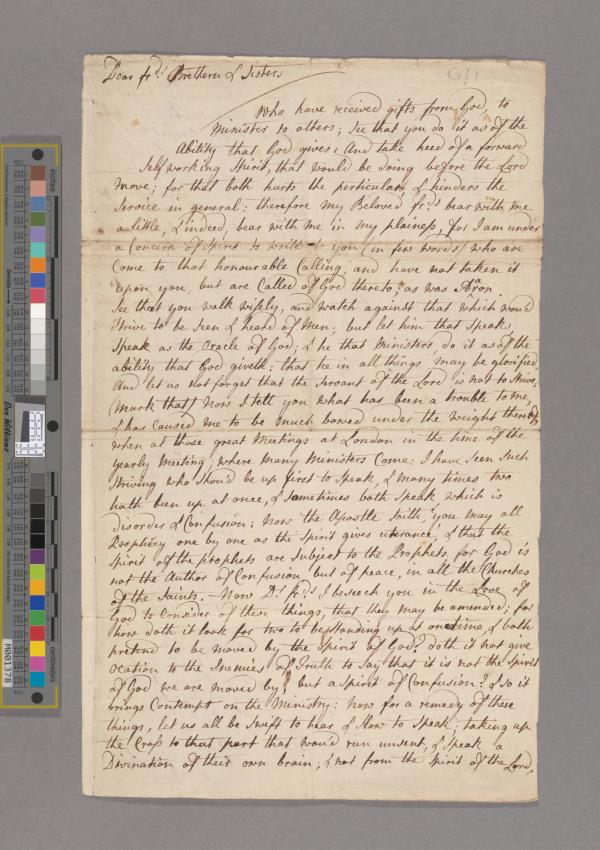 G/1
Dear frds Brethern & Sisters
Who have received gifts from God, to
Minister to others; See that you do it as of the
Ability that God gives: And take heed of a forward
Self working Spirit, that would be doing before the Lord
move; for that both hurts the particulars & hinders the
Service in general: therefore my Beloved frds bear with me
a little, & indeed, bear with me in my plainess, for I am under
a Concern of Spirit to write to you (in few words) who are
Come to that honourable Calling, and have not taken it
upon you, but are Called of God thereto; as was Aaron.
See that you walk wisely, and watch against that which woud
Strive to be Seen & heard of Men; but let him that Speaks,
Speak as the Oracle of God; & he that Ministers do it as of the
ability that God giveth; that he in all things may be glorified,
And let us not forget that the Servant of the Lord is not to Strive,
(Mark that) Now I tell you what has been a trouble to me,
& has Caused me to be much bowed under the weight thereof,
when at those great Meetings at London in the time of the
Yearly Meeting, where many Ministers Come: I have Seen Such
Striving who Shou'd be up first to Speak, & many times two
hath been up at once, & Sometimes both Speak which is
disorder & Confusion: Now the Apostle Saith, you may all
Prophecy one by one as the Spirit gives uterance, & that the
Spirit of the prophets are Subject to the Prophets, for God is
not the Author of Confusion, but of peace, in all the Churches
of the Saints. Now Dr frds I beseech you in the Love of
God to Consider of these things, that they may be amended; for
how doth it look for two to be Standing up at one time, & both
pretend to be moved by the Spirit of God? doth it not give
ocation to the Enemies of Truth to Say that it is not the Spirit
of God we are moved by? but a Spirit of Confusion? & So it
brings Contempt on the Ministry: Now for a remedy of these
things, let us all be Swift to hear & Slow to Speak; taking up
the Cross to that part that wou'd run unsent, & Speak a
Divination of their own brain; & not from the Spirit of the Lord,
inches
Density
Don Williams
centimeters
M001378